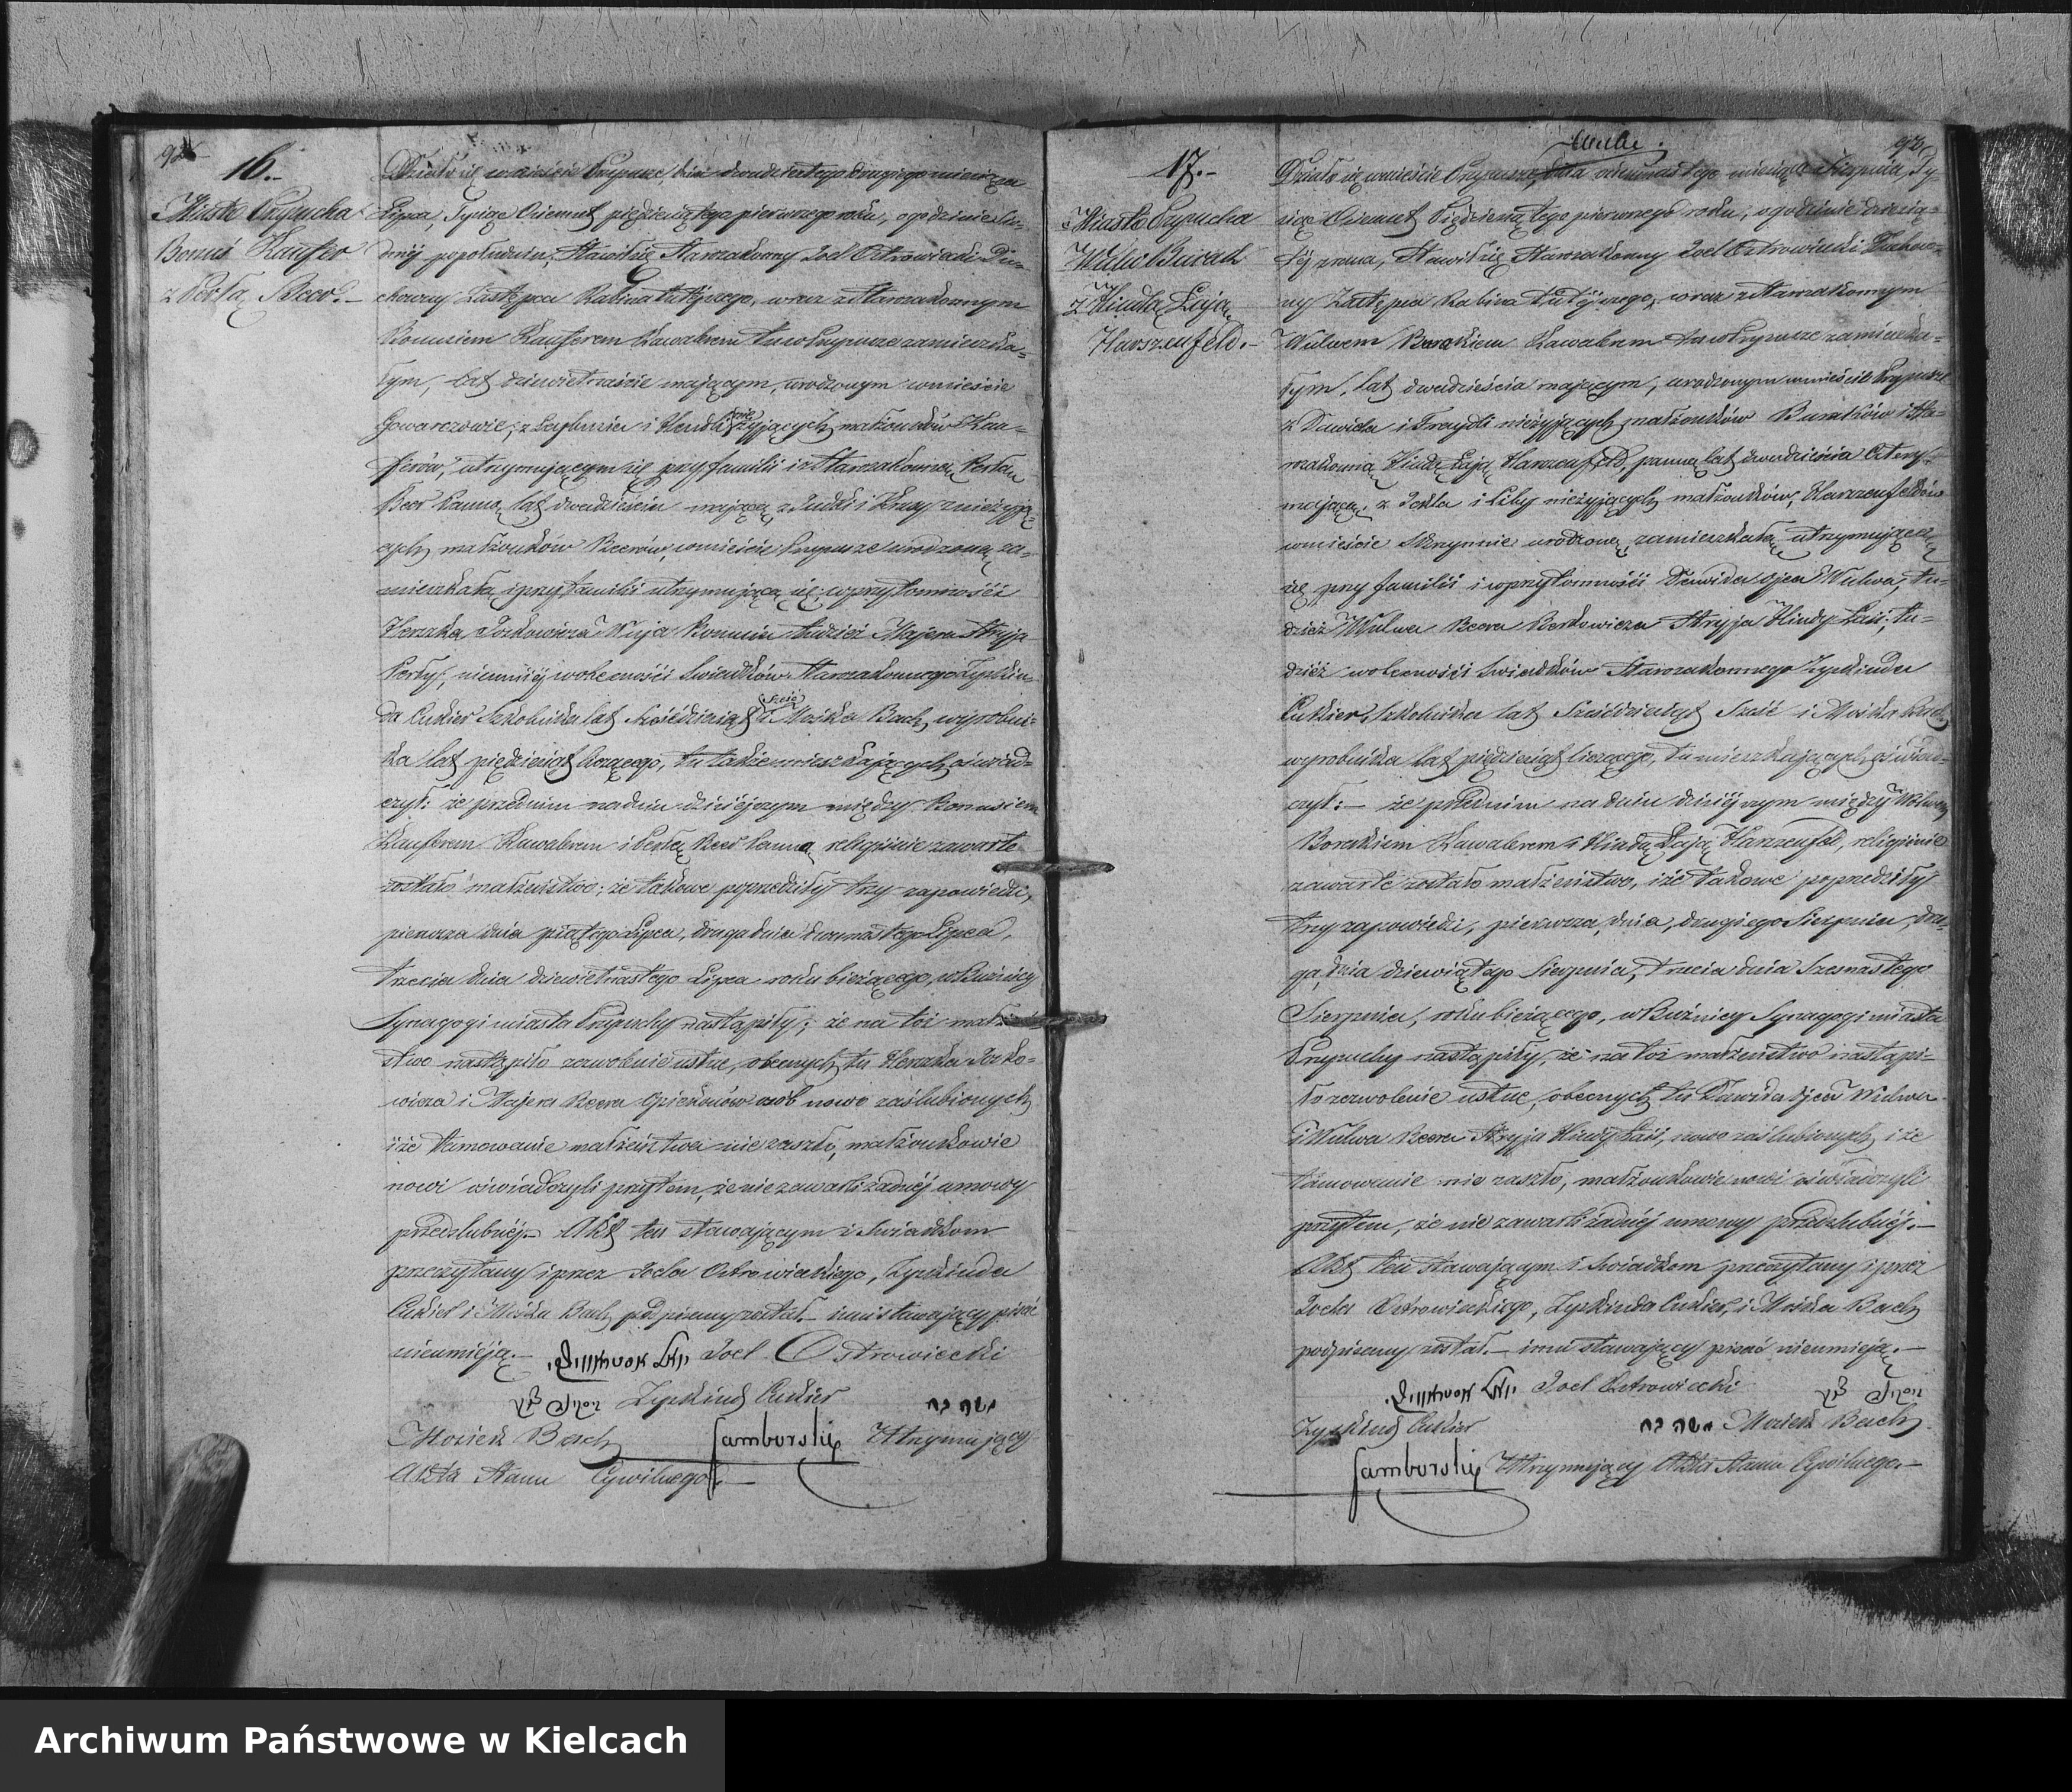 16.
Miasto Przysucha
Bonuś Kaufer
z Perlą Beer.
Działo się w mieście Przysusze, dnia dwudziestego drugiego miesiąca
Lipca, Tysiąc Ośmset pięćdziesiątego pierwszego roku, o godzinie
popołudniu, Stawił się Starozakonny Joel Ostrowiecki Du-
chowny Zastępca Rabina tutejszego, wraz z Starozakonnym
Bonusiem Kauferem Kawalerem tu w Przysusze zamieszka-
łym, lat dziewietnaście mającym, urodzonym w mieście
Gowarczowie, z i Hendli nieżyjących małżonków Kau-
ferów, utrzymującym się przy familii i z Starozakonną Perlą
Beer Panną, lat dwadzieścia mającą, z Judki i nieżyją-
cych małżonków Beerów, w mieście Przysusze urodzoną, za-
mieszkałą i przy familii utrzymującą się; w przytomności
Herszka Joskowicza Wuja Bonusia tudzież Majera Stryja
Perly, niemniej w obecności Świadków Starozakonnego Zyskin-
da Cukier Szkolnika lat Sześćdziesiąt sześć i Mośka Bach, wyrobni-
ka lat pięćdziesiąt liczącego, tu także mieszkających, oświad-
czył: że przednim na dniu dzisiejszym między Bonusiem
Kauferem Kawalerem i Perlą Beer Panną religijnie zawarte
zostało małżeństwo; że takowe poprzedziły trzy zapowiedzi,
pierwsza dnia piątego Lipca, druga dnia dwunastego Lipca,
trzecia dnia dziewietnastego Lipca roku bieżącego, w Bużnicy
Synagogi miasta Przysuchy nastąpiły; że na toż małżeń-
stwo nastąpiło zezwolenie ustne, obecnych tu Herszka Josko-
wicza i Majera Beera Opiekunów osób nowo zaślubionych
i że tamowanie małżeństwa nie zaszło, małżonkowie
nowi oświadczyli przytem, że nie zawarli żadnej umowy
przedślubnej.- Akt ten stawającym i Świadkom
przeczytany i przez Joela Ostrowieckiego, Zyskinda
Cukier i Mośka Bach podpisany został.- inni stawający pisać
nieumieją.- יואל אסטראוויצקי Joel Ostrowiecki
זיסקינד צוקר Zyskind Cukier משה בך
Mosiek Bach Samborski Utrzymujący
Akta Stanu Cywilnego.-
17.-
Miasto Przysucha
Wulw Burak
z Hindą Łają
Harszenfeld.-
Działo się w mieście Przysusze, dnia ośmnastego miesiąca Sierpnia, Ty-
siąc Ośmset Pięćdziesiątego pierwszego roku, o godzinie dziesią-
téj zrana, Stawił się Starozakonny Joel Ostrowiecki Duchow-
ny Zastępca Rabina tutéjszego, wraz z Starozakonnym
Wulwem Burakiem Kawalerem tu w Przysusze zamieszka-
łym, lat dwadzieścia mającym, urodzonym w mieście Przysusze
z Dawida i Fraydli nieżyjących małżonków Buraków i Sta-
rozakonną Hindą Łają Harszenfeld, panną lat dwadzieścia Cztery
mającą, z Joska i Liby nieżyjących małżonków, Harszenfeldów
w mieście Skrzynnie urodzoną, zamieszkałą, utrzymującą
się przy familii i w przytomności Dawida Ojca Wulwa, tu-
dzież Wulwa Beera Berkowicza Stryja Hindy Łaii, tu-
dzież w obecności Świadków Starozakonnego Zyskinda
Cukier, Szkolnika lat Sześćdziesiąt Sześć i Mośka Bach
wyrobnika lat pięćdziesiąt liczącego, tu mieszkających, oświad-
czył:- że przednim na dniu dzisiéjszym między Wulwem
Burakiem Kawalerem a Hindą Łają Harszenfeld, religijnie
zawarte zostało małżeństwo, i że takowe poprzedziły
trzy zapowiedzi, pierwsza, dnia, drugiego Sierpnia, dru-
ga, dnia dziewiątego Sierpnia, trzecia dnia Szesnastego
Sierpnia, roku bieżącego, w Bużnicy Synagogi miasta
Przysuchy nastąpiły, że na toż małżeństwo nastąpi-
ło zezwolenie ustne, obecnych tu Dawida Ojca Wulwa
i Wulwa Beera Stryja Hindy Łaii, nowo zaślubionych, i że
tamowanie nie zaszło, małżonkowie nowi oświadczyli
przytem, że nie zawarli żadnéj umowy przedślubnéj.-
Akt ten stawającym i Świadkom przeczytany i przez
Joela Ostrowieckiego, Zyskinda Cukier, i Mośka Bach
podpisany został.- inni stawający pisać nieumieją.-
יואל אסטראוויצקי Joel Ostrowiecki זיסקינד צוקר
Zyskind Cukier משה בך Mosiek Bach
Samborski Utrzymujący Akta Stanu Cywilnego.-
Archiwum Państwowe w Kielcach